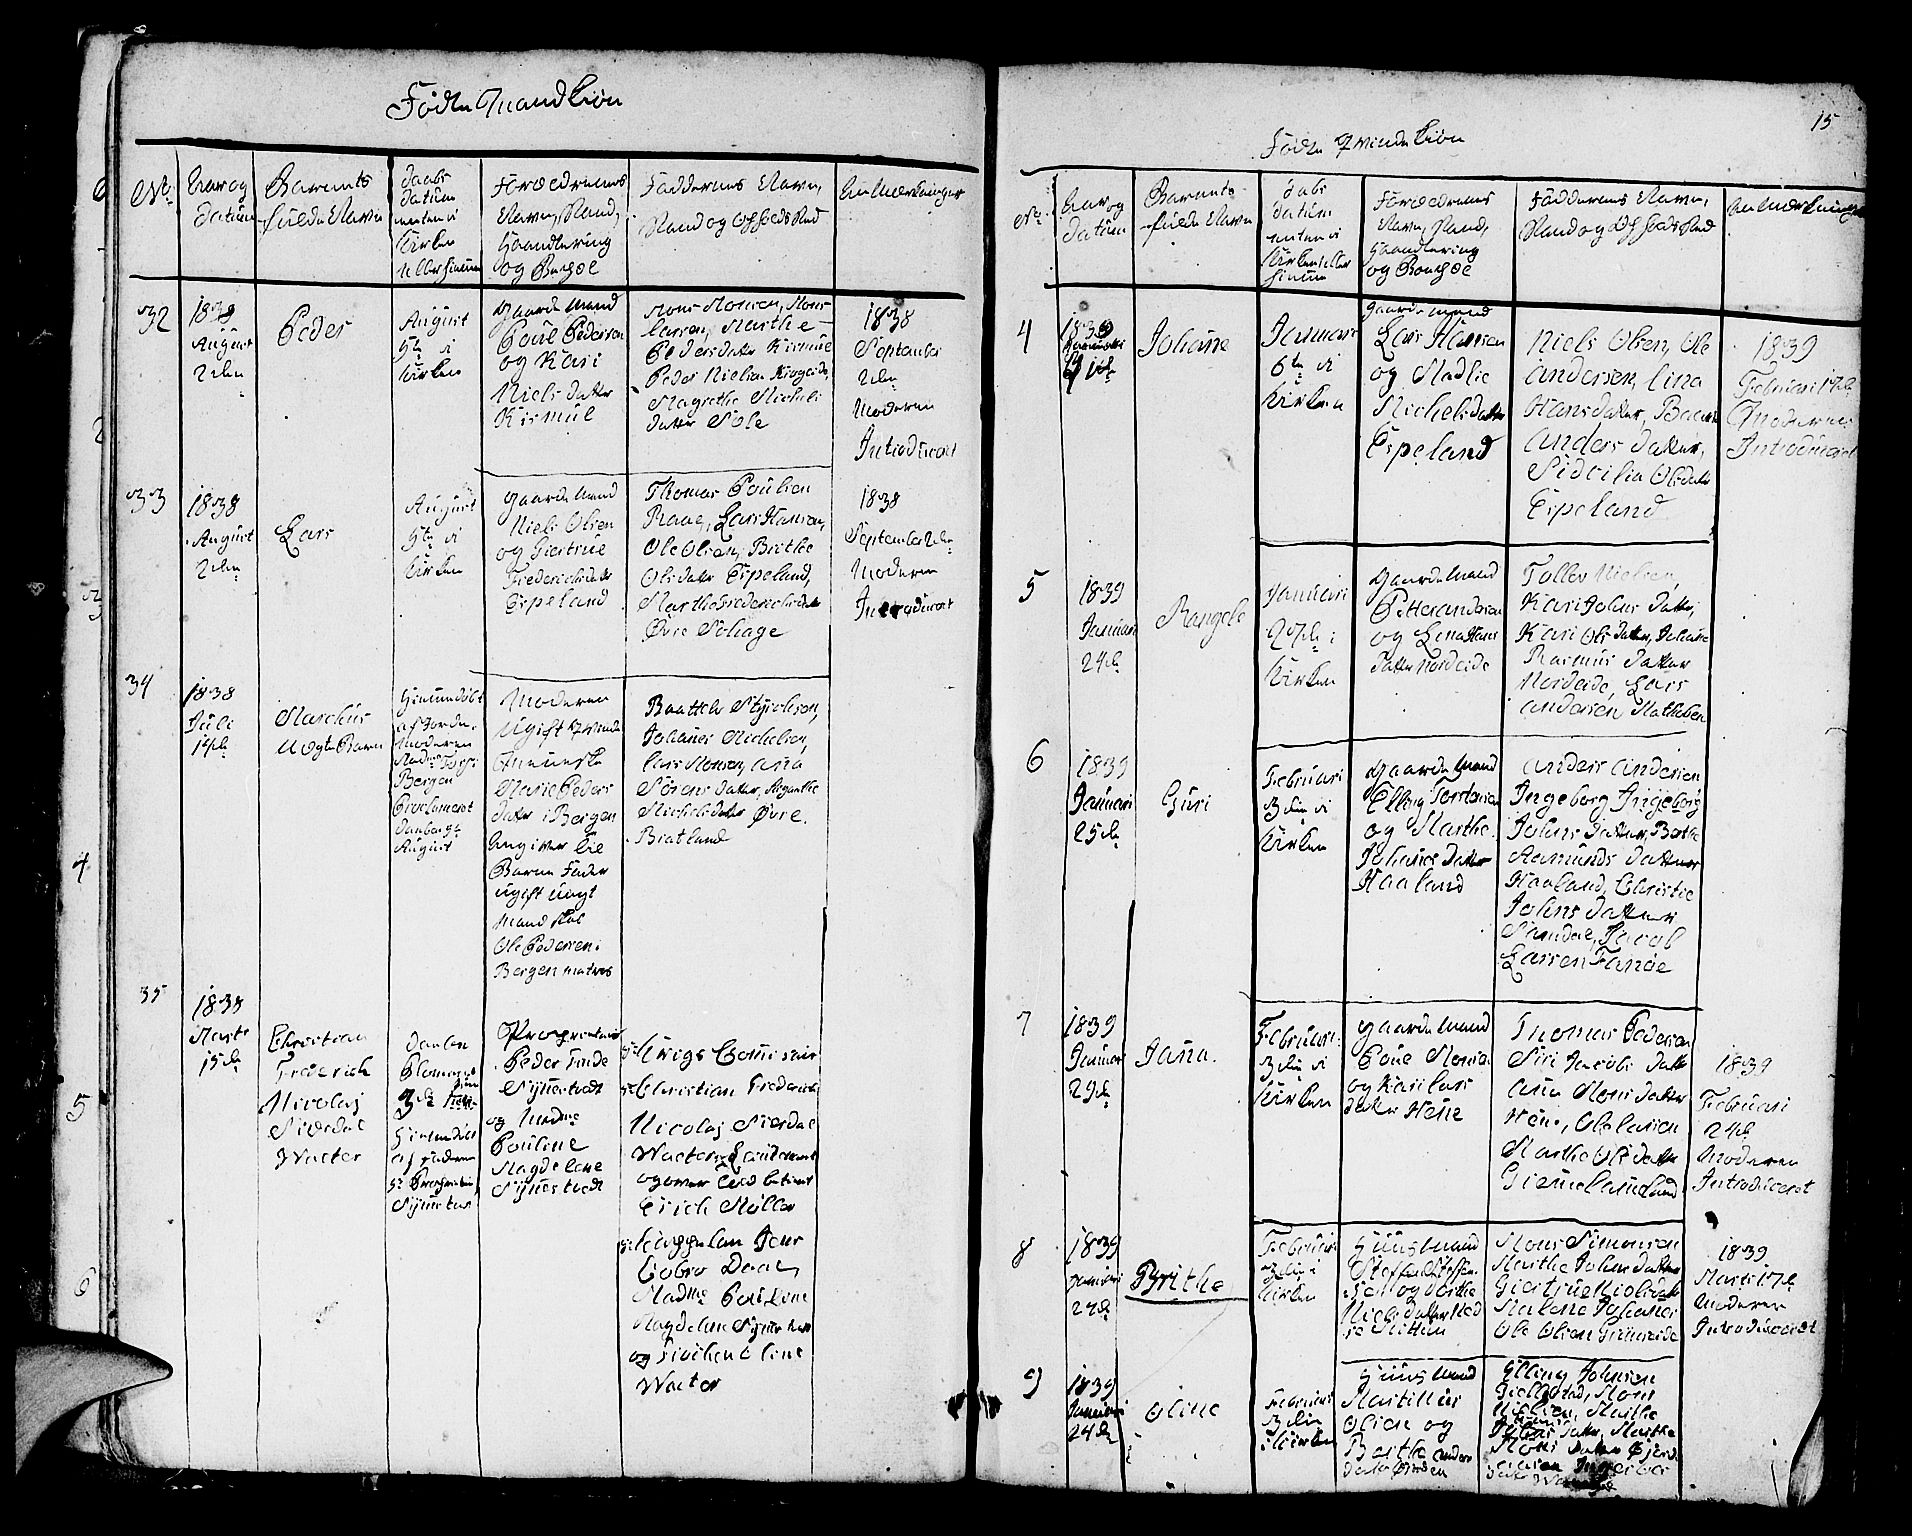 Fødte Mandkiøn
No
Aar og
Datum
Barnets
fulde Navn
Daabs
Datum
enten i
Kirken
eller hiemme
Forældrenes
Navn, Stand,
Haandtering
og Boepæl
Fadderenes Navn,
Stand og Opholdsted
Anmerkninger
32
1838
August
2den
Peder
August
5te i
Kirken
Gaardemand
Poul Pedersen
og Kari
Niels datter
Kismul
Mons Monsen, Mons
Larsen, Marthe
Pedersdatter Kismul
Peder Nielsen
Magrethe Michels
datter Sole
1838
September
2den
Moderen
Introduceret
33
1838
August
2den
Lars
August
5te i
Kirken
Gaardemand
Niels Olsen
og Giertrue
Friderichsdatter
Espeland
Thomas Poulsen
Raae, Lars Hansen,
Ole Olsen, Brithe
Olsdatter Espeland,
Marthe Friderichsdatter
Øvre Solhage
1838
September 2den
Moderen
Introduceret
34
1838
Juli
14de
Marchus
Uægte Barn
Hiemmedøbt
af Jorde-
moderen
Bergen
Proclameret
August
Moderen
Ugift Qvinde
Marie Peders
datter i Bergen
Angiver til
Barne Fader
Ugift ungt
Mandskal
Ole Pedersen
Bergen
Baatels Styrchsen,
Johanes Michelsen,
Lars Monsen, Ana
Sörens datter, Magrethe
Michelsdatter Øvre
Birkeland
35
1838
Marts
15de
Christian
Frederich
Nicolaj
Sivedal
Walter
Hiemmedøbt
af Faderen
Proprietair
Peder Finde
Synnestvedt
og Madme
Pouline
Magdelene
Synnestvedt
Hr Krigs Comisair
Hr Christian Frederich
Nicolaj Sivedal
Walter, Leutenant
og over Told betient
Erich Møller
Hr Kappelan Jens
Cobro Daae,
Madme Pouline
Magdelene Synnestvedt
Walter
15
Fødte Qvindekiøn
No
Aar og
Datum
Barnets
fulde Navn
Daabs
Datum
enten i
Kirken eller
hiemme
Forældrenes
Navn, Stand,
Haandtering
og Boepæl
Fadderenes Navn,
Stand og Opholdsted
Anmerkninger
4
1839
Januari
Johane
Januari
6te i
Kirken
Gaardemand
Lars Hansen
og Madlie
Michelsdatter
Espeland
Niels Olsen, Ole
Andersen, Lina
Hansdatter,
Anders datter,
Sidcilia Olsdatter
Espeland
1839
Februari 17de
Moderen
Introduceret
5
1839
Januari
24de
Rangele
Januari
27de i
Kirken
Gaardemand
Petter Andersen
og Lena Hans
datter Nordeide
Tollev Nielsen,
Kari Johns datter,
Kari Ols datter, Johane
Rasmus datter
Nordeide, Lars
Andersen Mathisen
6
1839
Januari
25de
Guri
Februari
3die i
Kirken
Gaardemand
Elling
og Marthe
Johanes datter
Haaland
Anders Andersen
Ingeborg Ingeborg
Johns datter, Brithe
Aamunds datter
Haaland, Christie
Johns datter
Samdal, Jacob
Larsen Fanøe
7
1839
Januari
29de
Jana.
Februari
3die i
Kirken
Gaardemand
Poul Monsen
og Kari Lars
datter Hene
Thomas Pedersen
Siri Jacobs datter
Ana Mons datter
Hene, Ole Larsen
Marthe Ols datter
1839
Februari
24de
Moderen
Introduceret
8
1839
Januari
24de
Brithe
Februari
3die i
Kirken
Huusmand
Steffen Steffen-
sen og Dorthe
Niels datter Ned
re Titland
Mons Simonsen
Marthe Johns datter
Giertrue Nielsdatter
Malene Johanes
Ole Olsen Grimseide
1839
Marts 17de
Moderen
Introduceret
9
1839
Januari
24de
Oline
Februari
3die
i Kirken
Huusmand
Martinus
Olsen og
Berthe Anders
datter
Elling Johnsen
Mons
Nielsen, Marthe
Johns datter, Marthe
Mons datter